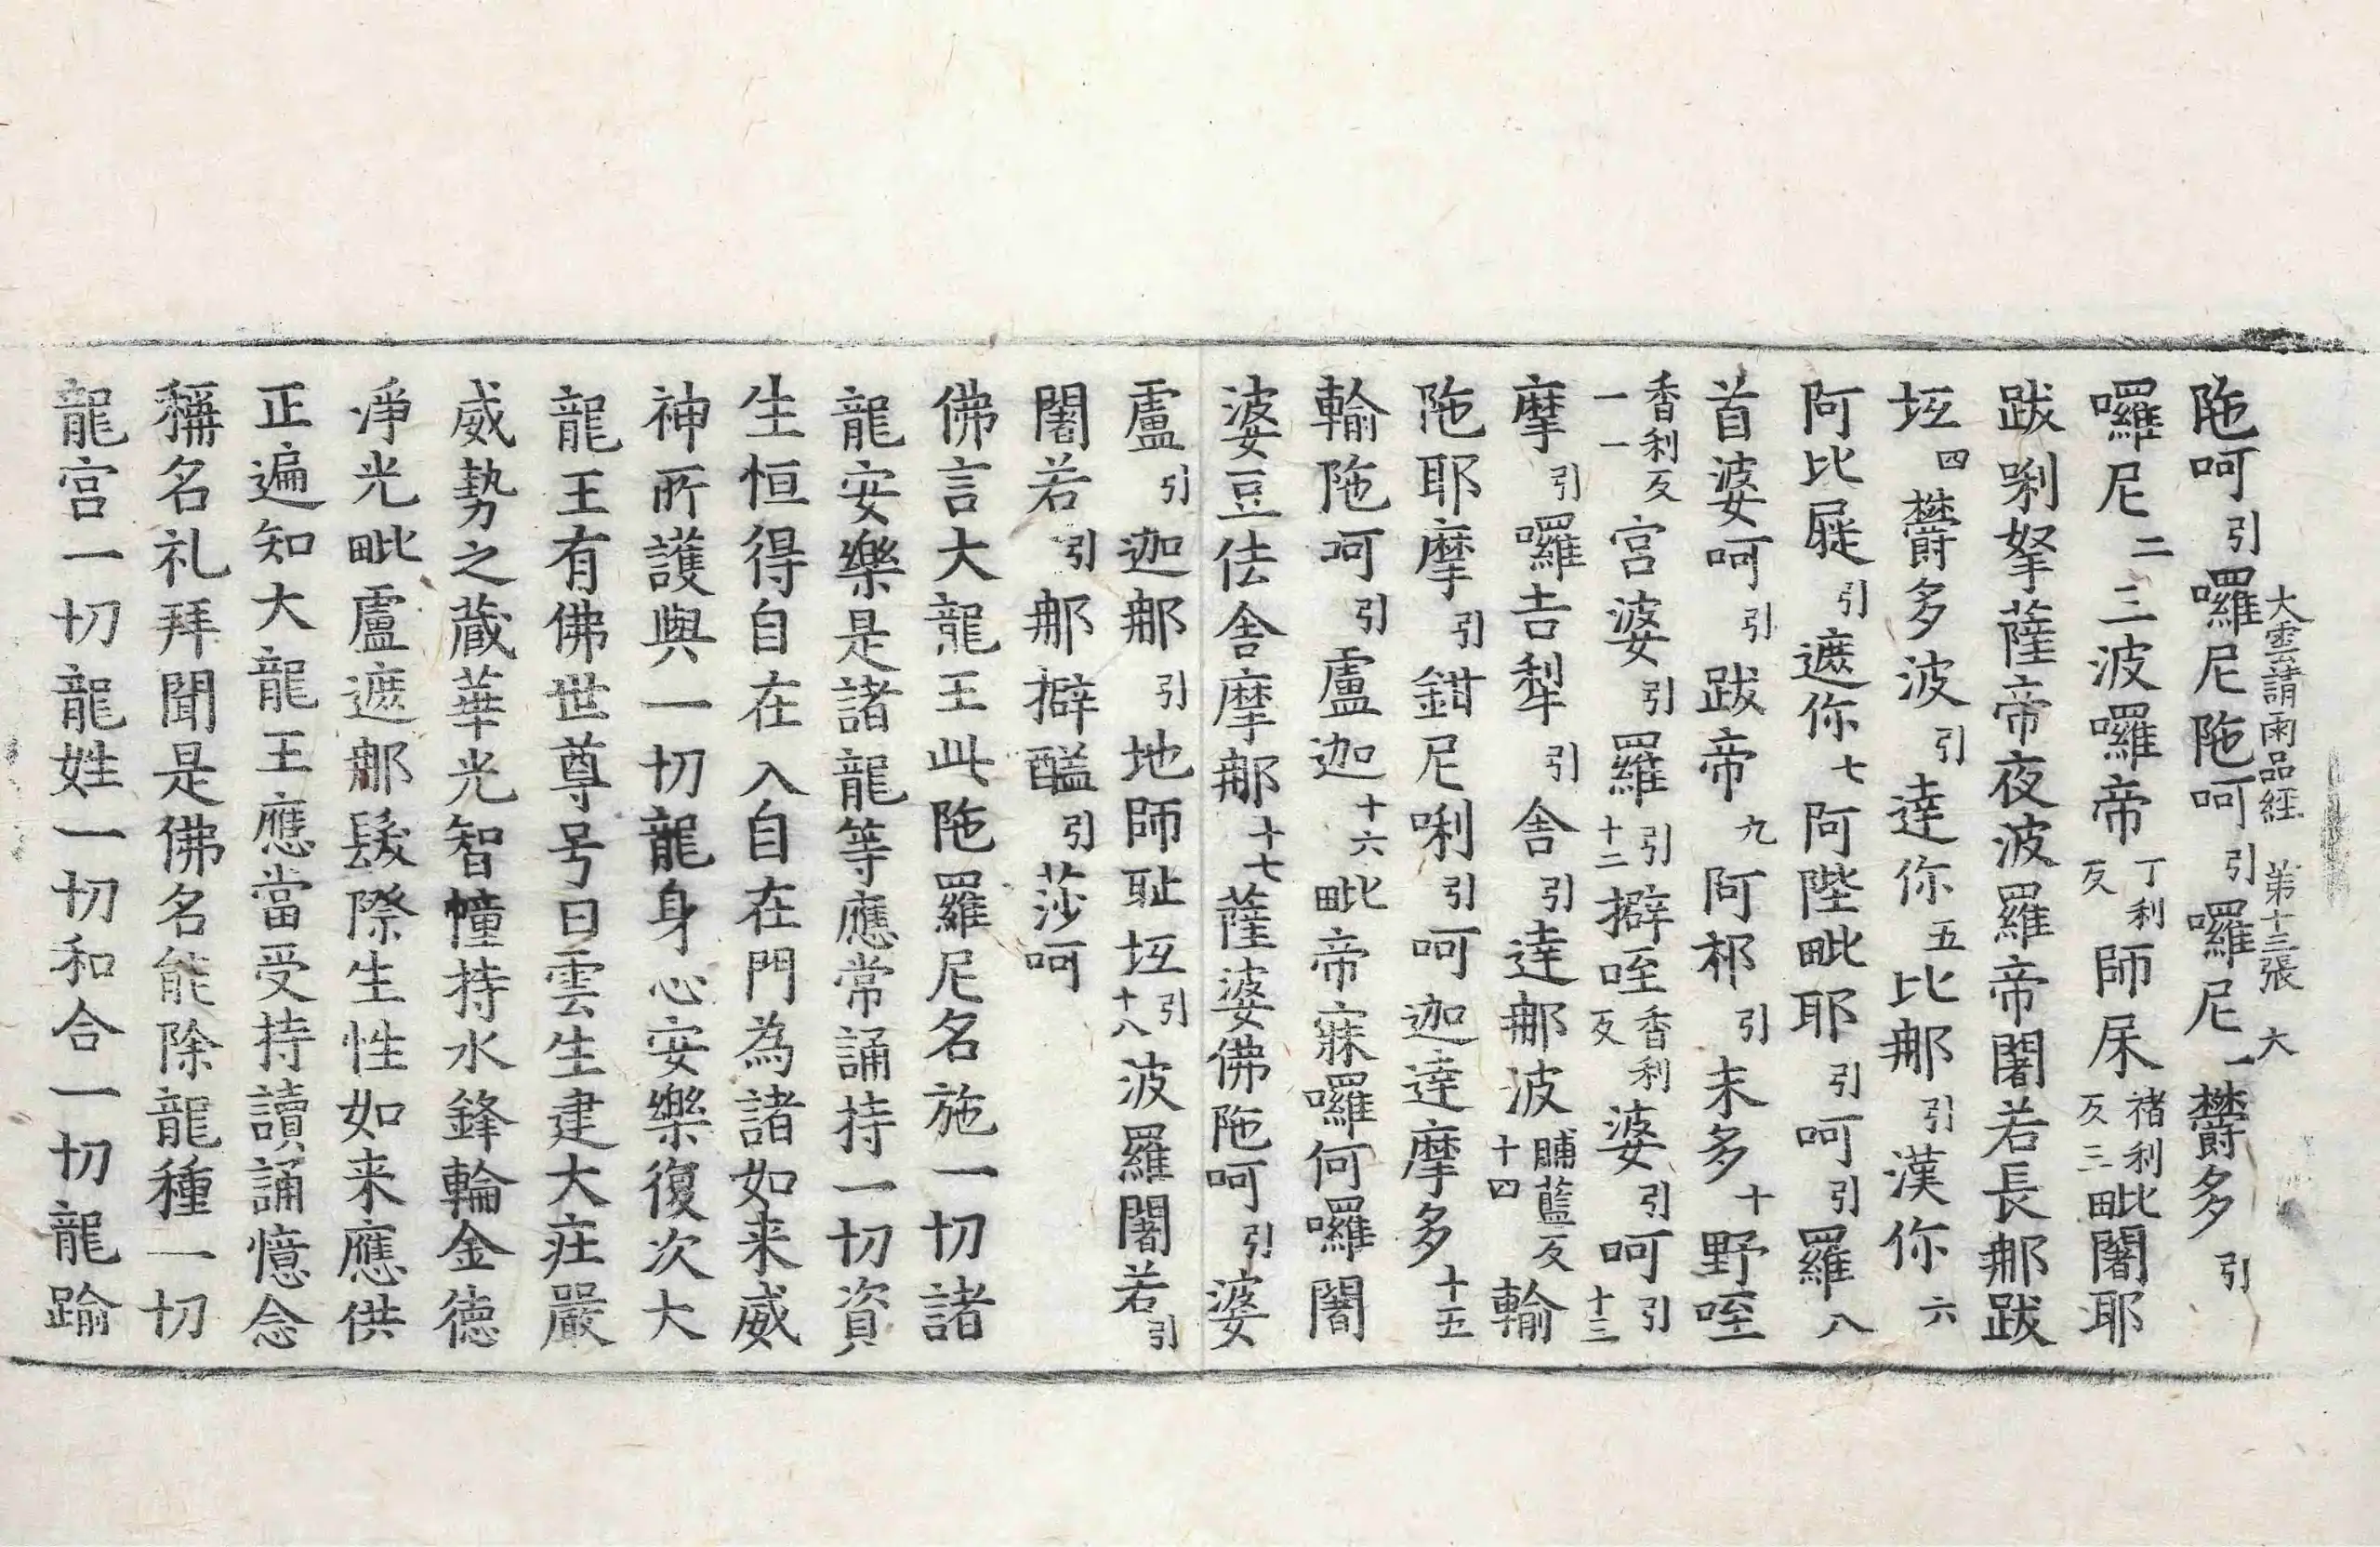 大雲請雨品經 第十三張 大
陁呵引囉尼陁呵引囉尼一欝多引
囉尼二三波囉帝丁利反師㞏禇利反三毗闍耶
跋唎拏薩帝夜波羅帝闍若長那跋
坘四欝多波引達你五比那引漢你六
阿比屣引遮你七阿陛毗耶引呵引羅八
首婆呵引跋帝九阿祁引末多十野咥
香利反一一宫婆引羅引十二擗咥香利反婆引呵引十三
摩引囉吉犁引舍引達那波脯藍反十四輸
陁耶摩引鉗尼唎引呵迦達摩多十五
輸陁呵引盧迦十六毗帝寐囉何囉闍
婆豆佉舍摩那十七薩婆佛陁呵引婆
盧引迦那引地師耻坘引十八波羅闍若引
闍若引那擗醯引莎呵
佛言大龍王此陁羅尼名施一切諸
龍安樂是諸龍等應常誦持一切資
生恒得自在入自在門為諸如来威
神所護與一切龍身心安樂復次大
龍王有佛世尊号曰雲生建大莊嚴
威勢之蔵華光智幢持水鋒輪金德
淨光毗盧遮那髮際生性如来應供
正遍知大龍王應當受持讀誦憶念
稱名礼拜聞是佛名能除龍種一切
龍宫一切龍姓一切和合一切龍踰